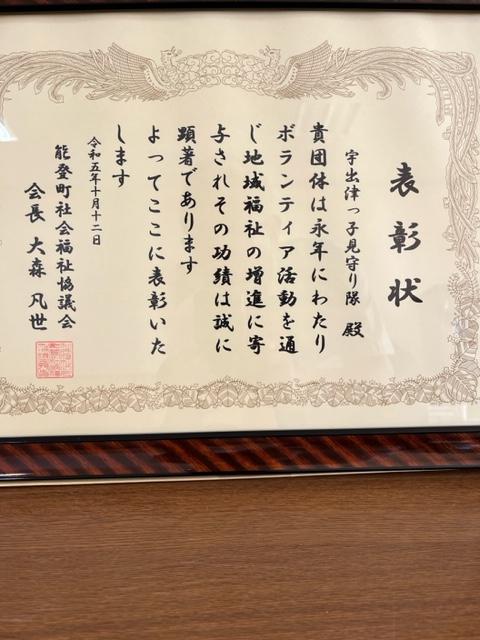 表彰状
宇出津っ子見守り隊 殿
貴団体は永年にわたり
ボランティア活動を通
じ地域福祉の増進に寄
与されその功績は誠に
顕著であります
よってここに表彰いた
します
令和五年十月十二日
能登町社会福祉協議会
会長 大森 凡世